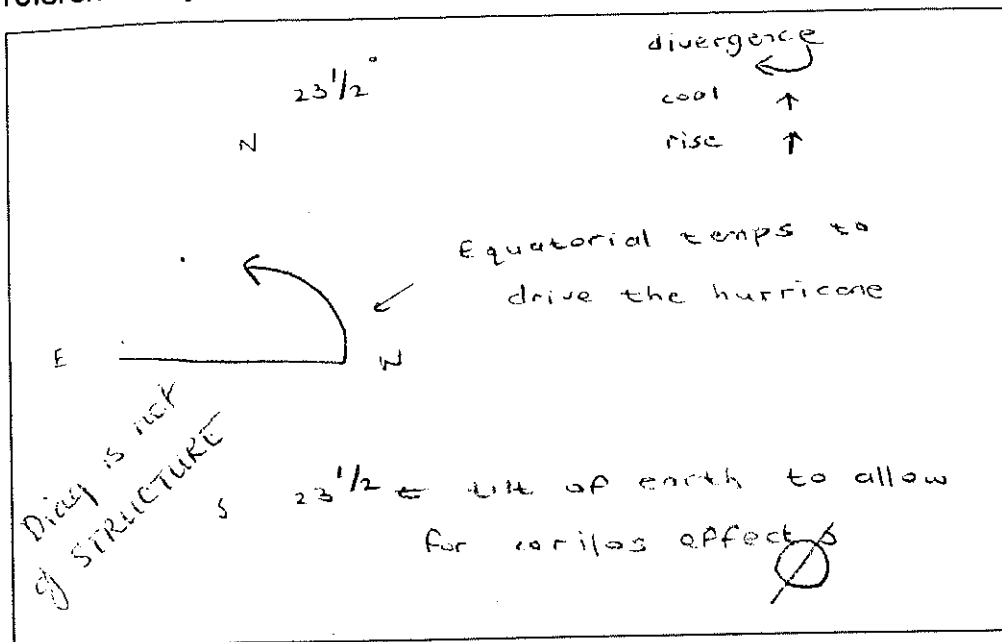 23 1/2 °
N
divergence
cool ↑
rise ↑
Equatorial temps to
drive the hurricane
E
W
Diag is not
of STRUCTURE
S
23 1/2 ← tilt of earth to allow
for corilos effect